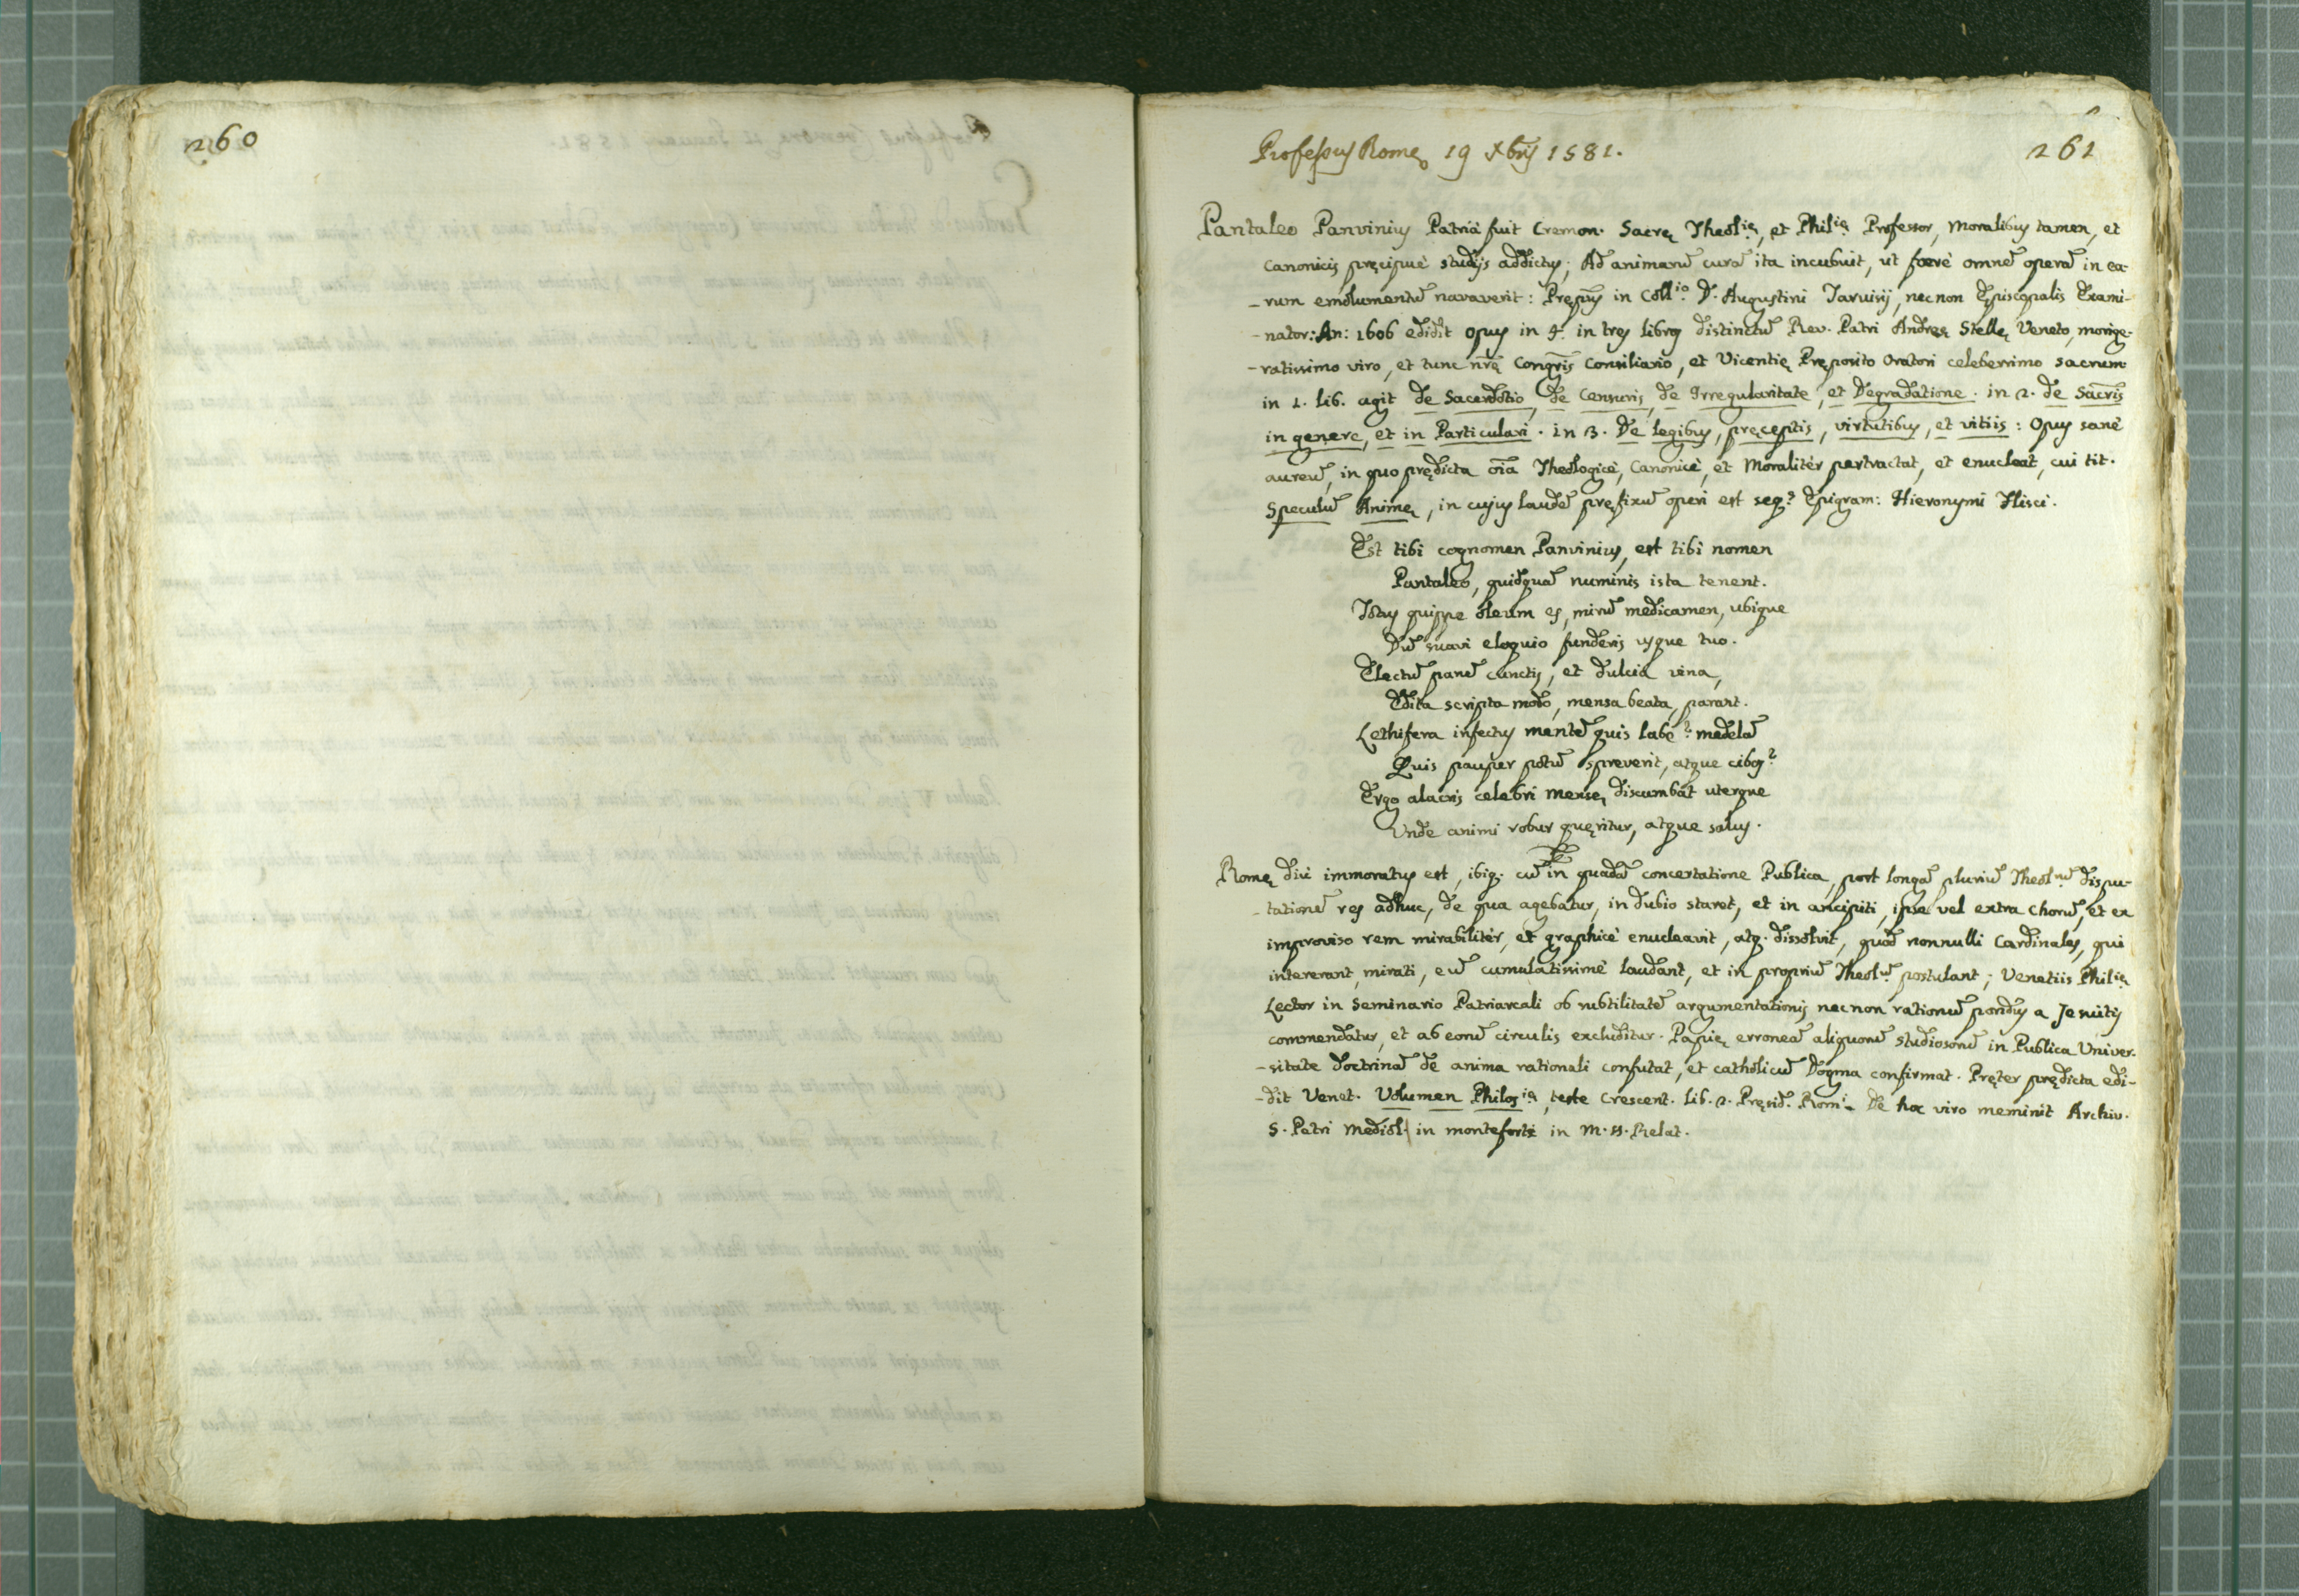 260
261
Professus Romę 19 Xbrij 1581.
Pantaleo Panvinius Patria fuit Cremon. Sacrę Theol.ię, et Phil.ię Professor, Moralibus tamen, et
Canonicis pręcipuè studijs addictus; Ad animarū curā ita incubuit, ut ferè omnē operā in ea-
-rum emolumentū navaverit: Pręp.us in Coll.io D. Augustini Tarvisij, nec non Episcopalis Exami-
-nator: An: 1606 edidit Opus in 4. in tres libros distinctū Rev. Patri Andreę Stellę Veneto, morige-
-ratissimo viro, et tunc nr̄ę Congr̄is Consiliario, et Vicentię Pręposito Oratori celeberrimo sacrum
in 1. lib. agit de Sacerdotio, de Censuris, de Irregularitate, et Degradatione. in 2. de Sacr̄is
in genere, et in Particulari. in 3. De legibus, pręceptis, virtutibus, et vitiis: Opus sanè
aureū, in quo prędicta oīa Theologicè, Canonicè, et Moralitèr pertractat, et enucleat, cui tit.
Speculū Animę, in cujus laudē pręfixū operi est seq.s Epigram: Hieronymi Flisci.
Est tibi cognomen Panvinius, est tibi nomen
Pantaleo, quidquā numinis ista tenent.
Totus quippe oleum es, mirū medicamen, ubique
Dū suavi eloquio funderis usque tuo.
Electū panē cunctis, et dulcia vina,
Edita scripta modo, mensa beata, parant.
Lethifera infectus mentē quis labe? medelā
Quis pauper potū spreverit, atque cibos?
Ergo alacris celebri mensę discumbat uterque
Unde animi robur quęritur, atque salus.
Romę diu immoratus est, ibiq. cū in quadā concertatione Publica, post longā pluriū Theol.rū dispu-
-tationē res adhuc, de qua agebatur, in dubio staret, et in ancipiti, ipse vel extra Chorū, et ex
improviso rem mirabilitèr, et graphicè enucleavit, atq. dissolvit, quod nonnulli Cardinales, qui
intererant, mirati, eū cumulatissimè laudant, et in propriū Theol.ū postulant; Venetiis Phil.ię
Lector in Seminario Patriarcali ob subtilitatē argumentationis nec non rationū pondus a Jesuitis
commendatur, et ab eorū circulis excluditur. Papię erroneā aliquorū studiosorū in Publica Univer-
-sitate doctrinā de anima rationali confutat, et catholicū Dogma confirmat. Pręter prędicta edi-
-dit Venet. Volumen Philos.ię, teste Crescent. lib. 2. Pręsid. Rom.i De hoc viro meminit Archiv.
S. Petri Mediol. in monteforti in M.SS. Relat.